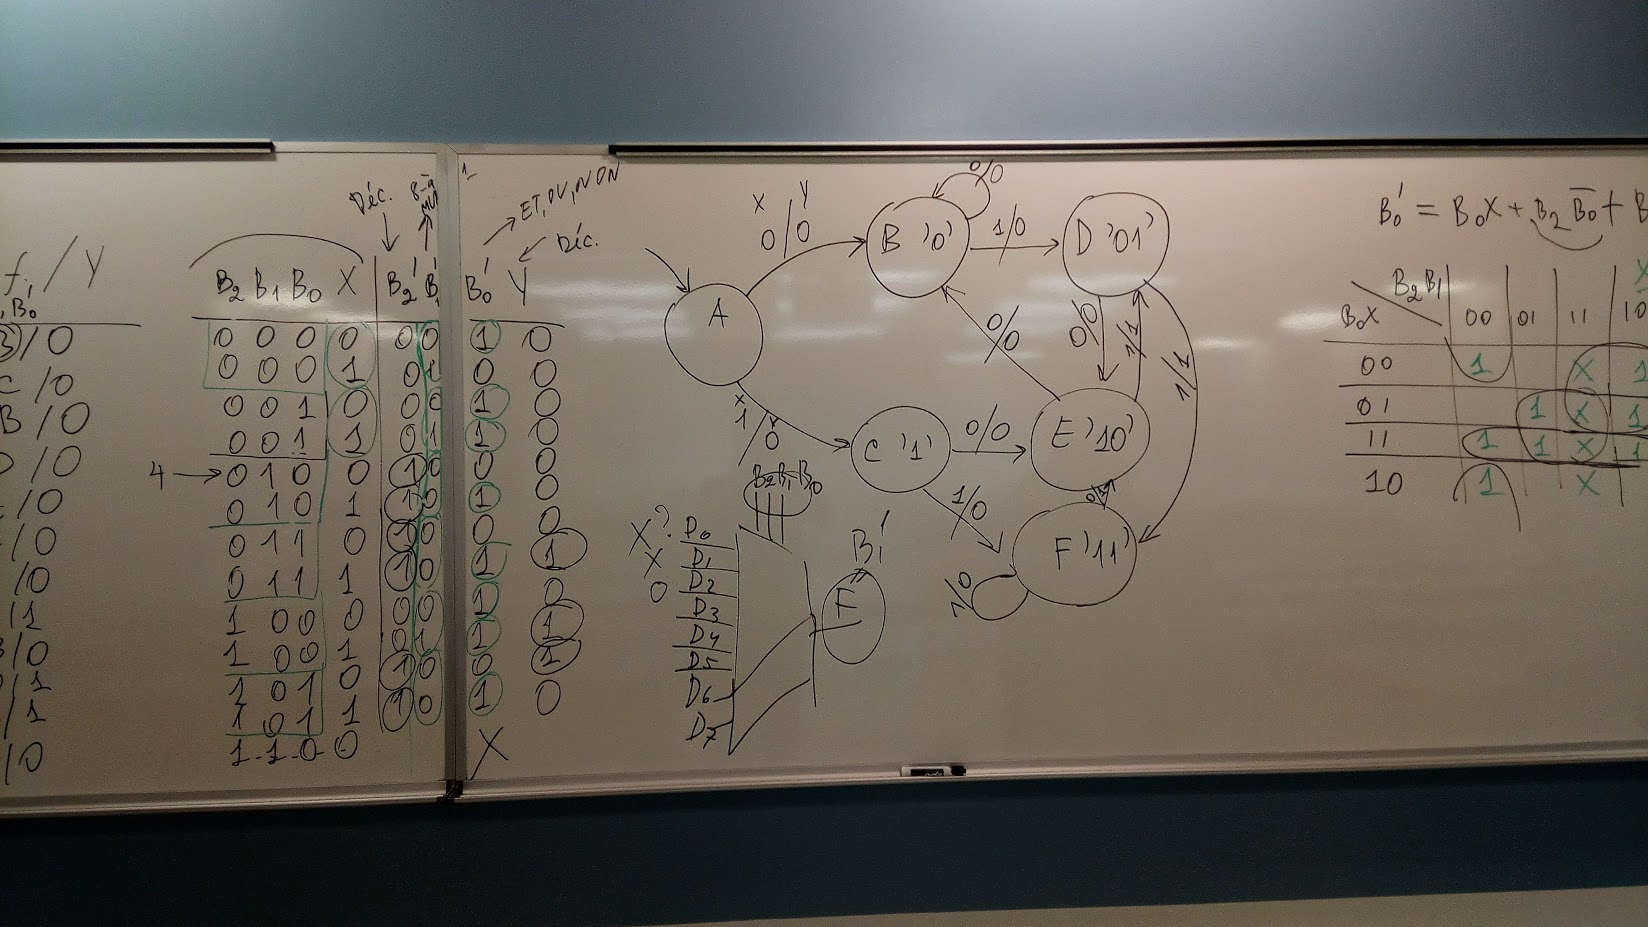 f₁ / Y
, B₀'
B / 0
C / 0
B / 0
D / 0
/ 0
/ 0
/ 0
/ 1
B / 0
/ 1
/ 1
/ 0
Déc.
8-à
ET, OU, NON
Déc.
B₂ B₁ B₀ X B₂' B₁' B₀' Y
0 0 0 0 0 0 1 0
0 0 0 1 0 1 0 0
0 0 1 0 0 0 1 0
0 0 1 1 0 1 1 0
4 → 0 1 0 0 1 0 0 0
0 1 0 1 1 0 1 0
0 1 1 0 1 0 0 0
0 1 1 1 1 0 1 1
1 0 0 0 0 0 1 0
1 0 0 1 0 1 1 1
1 0 1 0 1 0 0 1
1 0 1 1 1 0 1 0
1 1 0 0 X
X Y
0/0
A
X Y
1/0
B '0'
0/0
1/0
D '01'
0/0
0/0
1/1
1/1
C '1'
0/0
E '10'
1/0
F '11'
1/0
B₂ B₁ B₀
X? D₀
X D₁
0 D₂
D₃
D₄
D₅
D₆
D₇
B₁'
F
B₀' = B₀X + B₂B̅₀ + B
B₂B₁
B₀X 00 01 11 10
00 1 X 1
01 1 X 1
11 1 1 X 1
10 1 X